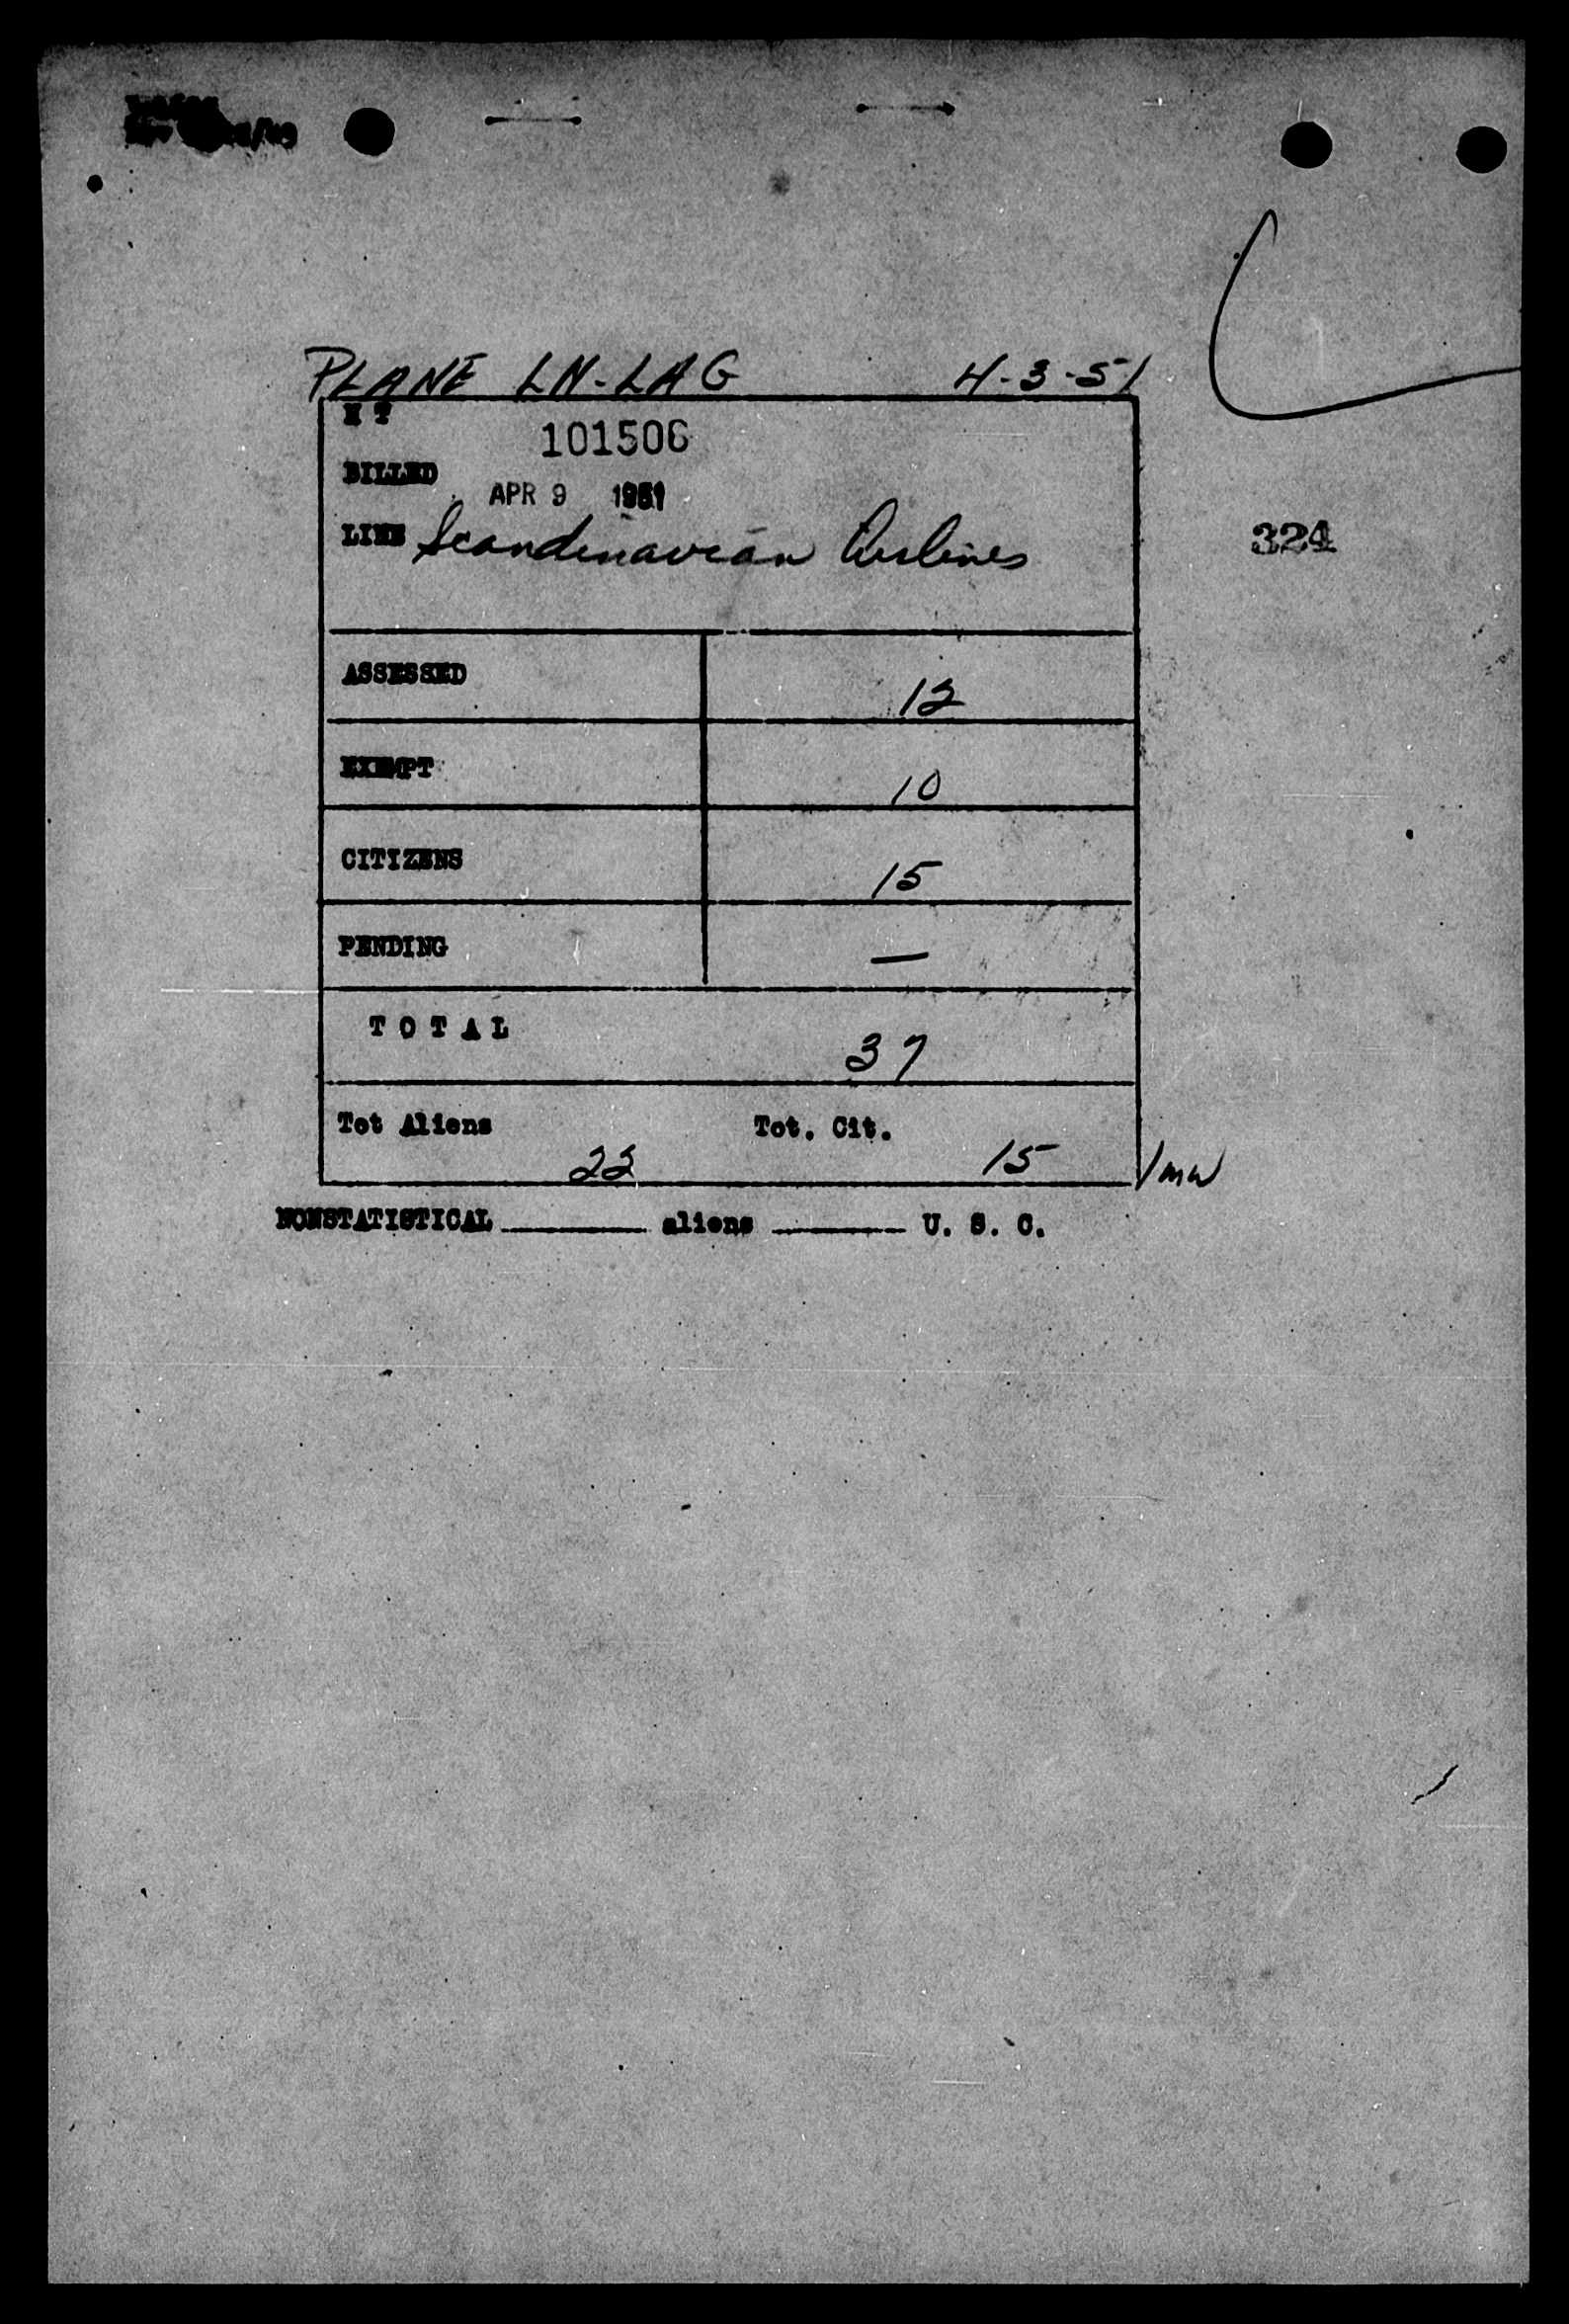 PLANE LN-LAG 4-3-51
101506
BILLED
APR 9 1951
LINE Scandinavian Airlines
324
ASSESSED 12
EXEMPT 10
CITIZENS 15
PENDING —
TOTAL 37
Tot Aliens 22 Tot. Cit. 15 /mw
NONSTATISTICAL ________ aliens ________ U. S. C.